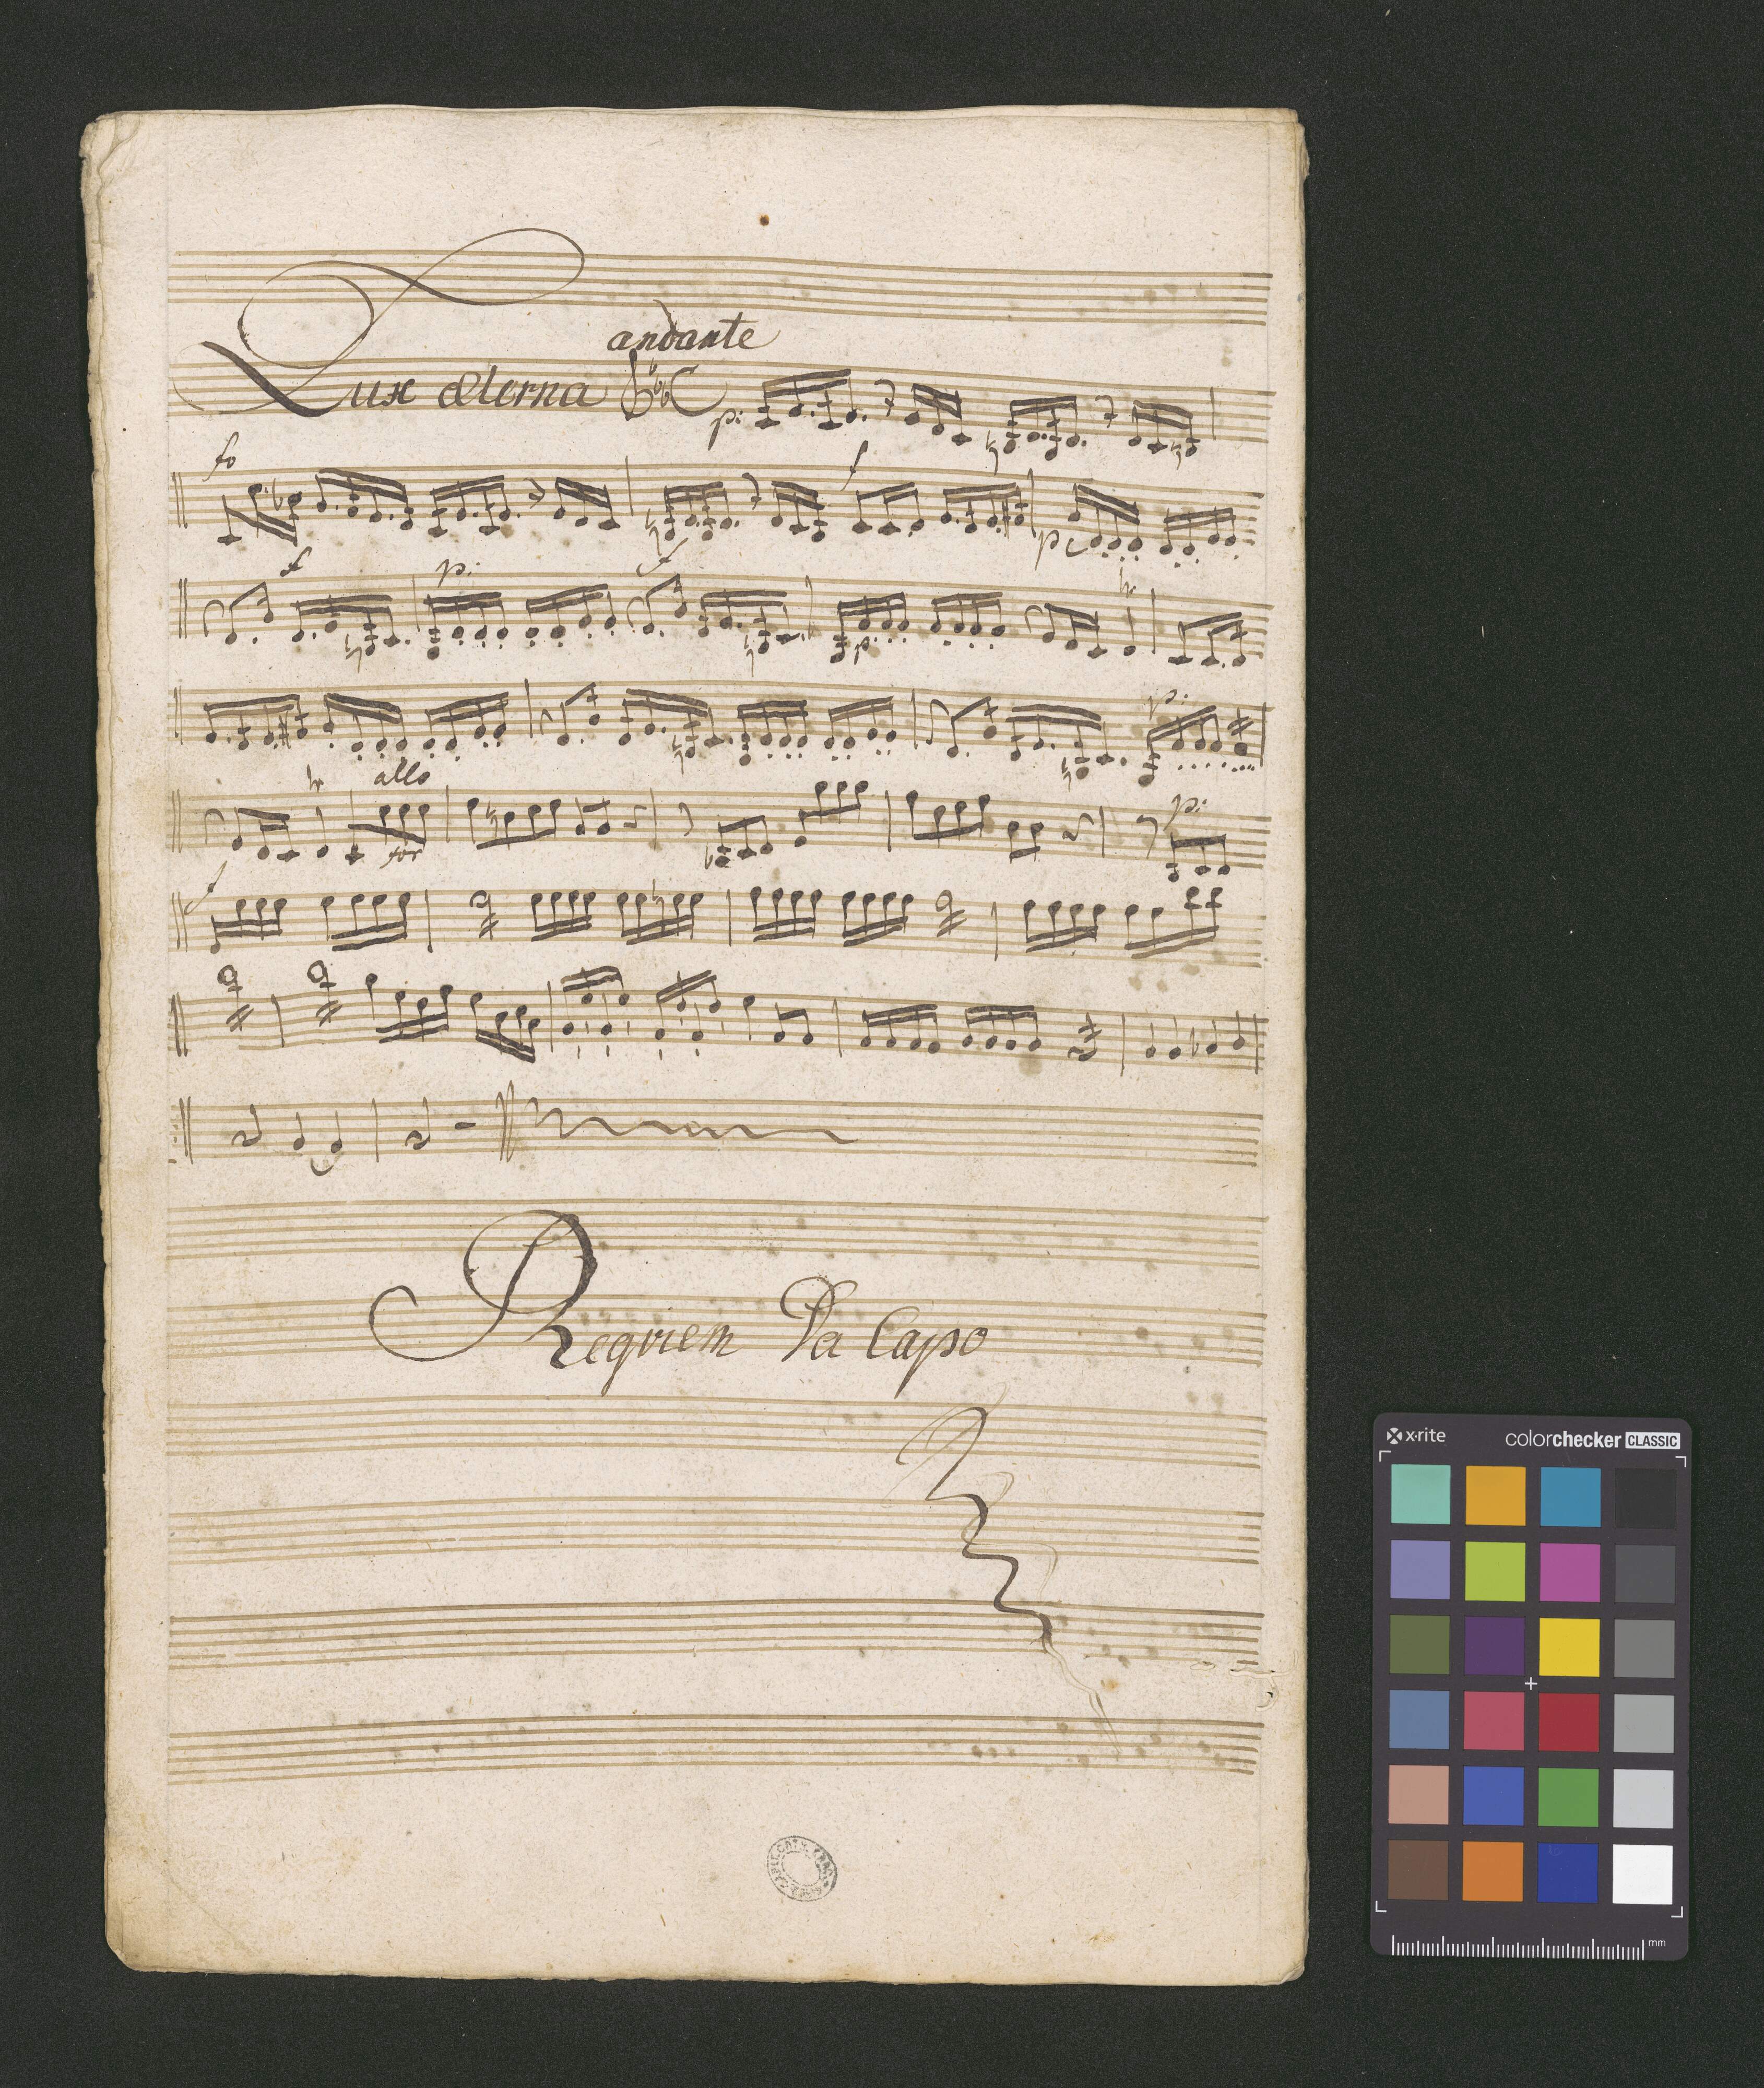 andante
Lux æterna p:
fo f p
f p: f p h
p:
h allo
for p:
f
Requiem Da Capo
x·rite colorchecker CLASSIC
mm